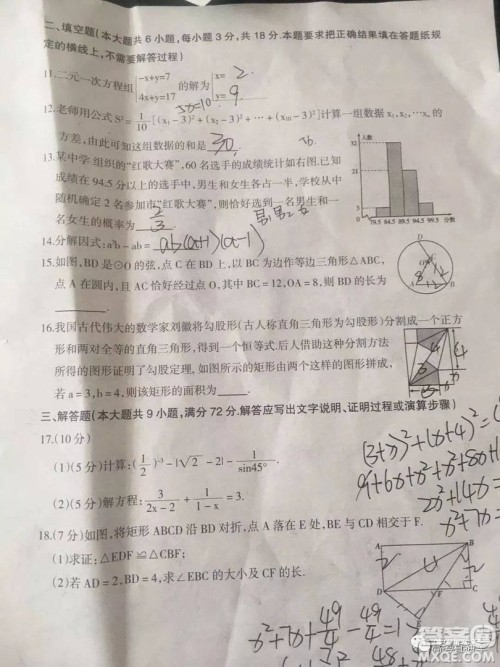 二、填空题(本大题共6小题,每小题3分,共18分.本题要求把正确结果填在答题纸规
定的横线上,不需要解答过程)
11.二元一次方程组 {-x+y=7 的解为 {x= 2
4x+y=17 y= 9
5x=10
12.老师用公式 S²=1/10[(x₁-3)²+(x₂-3)²+…+(x₁₀-3)²]计算一组数据 x₁,x₂,…xₙ 的
方差,由此可知这组数据的和是 30.
13.某中学组织的"红歌大赛",60名选手的成绩统计如右图.已知
成绩在94.5分以上的选手中,男生和女生各占一半,学校从中
随机确定2名参加市"红歌大赛",则恰好选到一名男生和一
名女生的概率为 2/3
人数
79.5 84.5 89.5 94.5 99.5 分数
14.分解因式:a³b-ab= ab(a+1)(a-1)
15.如图,BD是⊙O的弦,点C在BD上,以BC为边作等边三角形△ABC,
点A在圆内,且AC恰好经过点O,其中BC=12,OA=8,则BD的长为
.
16.我国古代伟大的数学家刘徽将勾股形(古人称直角三角形为勾股形)分割成一个正方
形和两对全等的直角三角形,得到一个恒等式.后人借助这种分割方法
所得的图形证明了勾股定理,如图所示的矩形由两个这样的图形拼成,
若a=3,b=4,则该矩形的面积为 .
三、解答题(本大题共9小题,满分72分.解答应写出文字说明、证明过程或演算步骤)
17.(10分)
(1)(5分)计算:(1/2)⁻³-|√2-2|-1/sin45°.
(2)(5分)解方程:3/(2x-2)+1/(1-x)=3.
18.(7分)如图,将矩形ABCD沿BD对折,点A落在E处,BE与CD相交于F.
(1)求证:△EDF≌△CBF;
(2)若AD=2,BD=4,求∠EBC的大小及CF的长.
答案圈
MXQE.COM